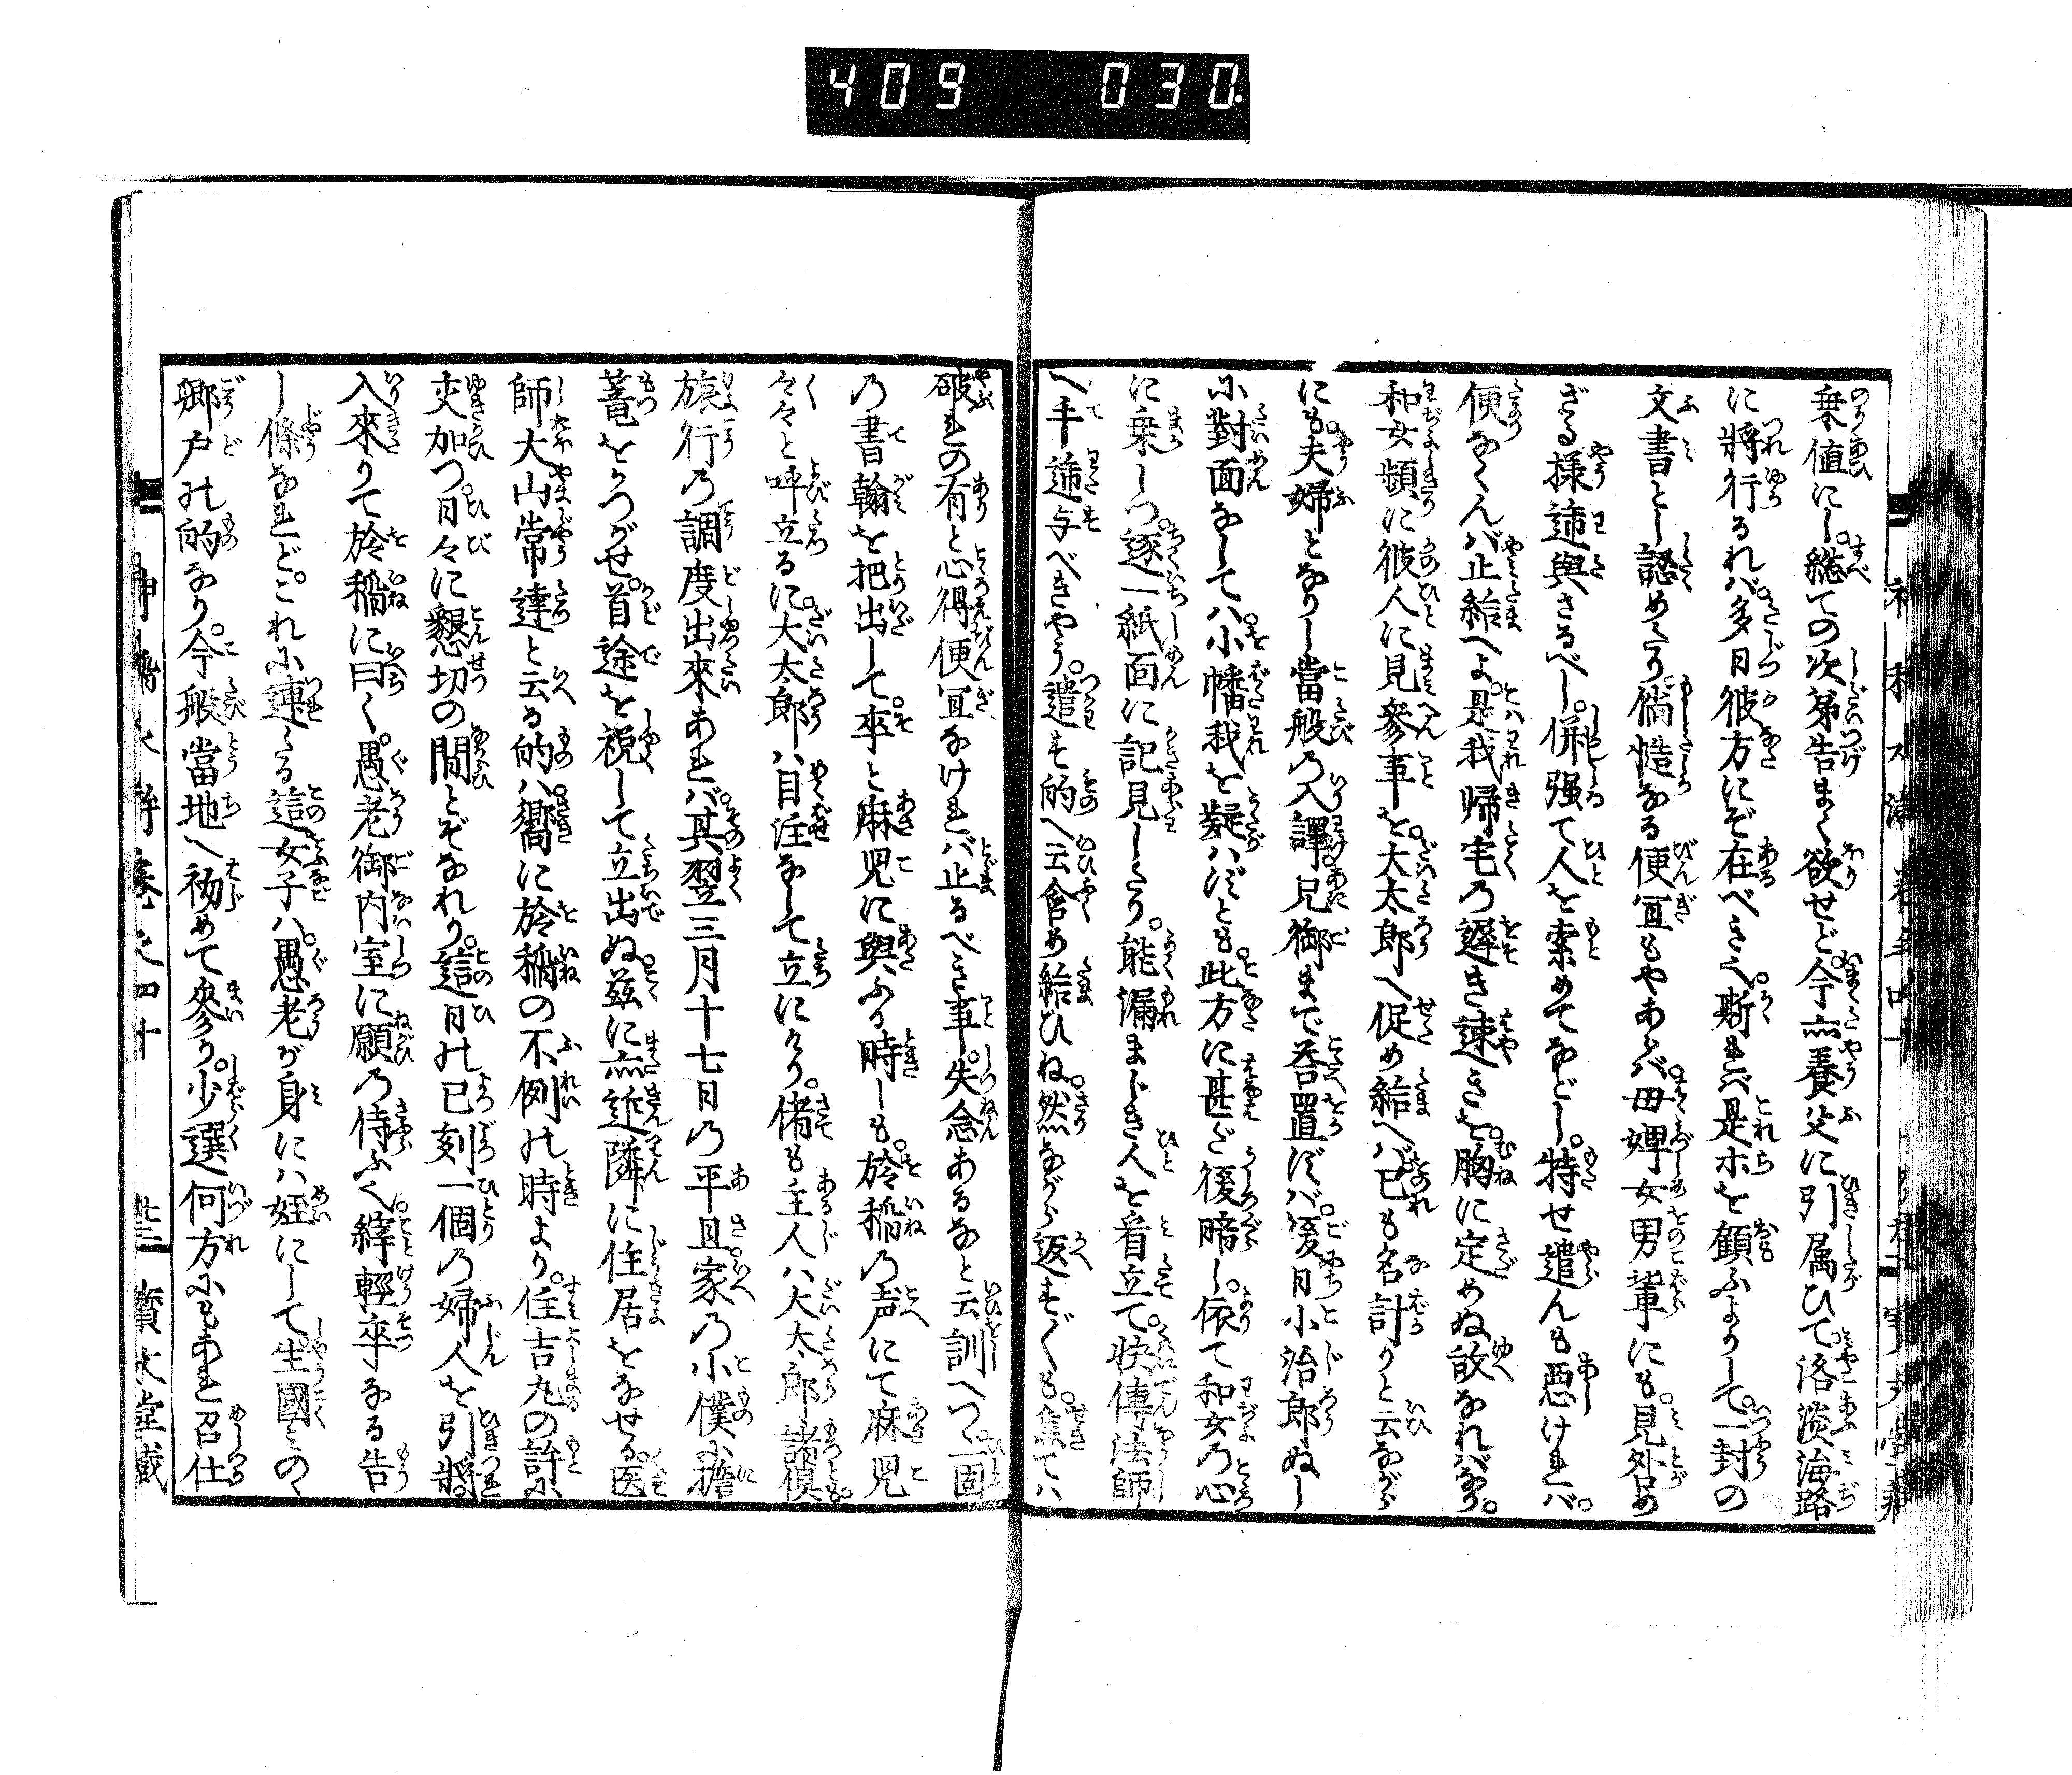 409 030
乗値にし。総ての次第告まく欲せど。今亦養父に引属ひて。洛淡海路
に將行るれバ。多日彼方にぞ在べきに。斯れバ是ホを顧ふよりして。一封の
文書とし認めたり。倘慥なる便宜もやあらバ。母婢女男輩にも。見外め
ざる様逓與さるべし。併强て人を索めてなどし。特せ遣んも惡けれバ。
便なくんバ止給へよ。是我帰宅乃遅き速きを。胸に定めぬ故なれバなり。
和女頻に彼人に見參事を。大太郎へ促め給へバ已も名計りと云ながら
にも。夫婦となりし當般乃入譯。兄御まで吞置ずバ。後日小治郎ぬし
に對面なしてハ。小幡我を疑ハずとも。此方に甚ど後暗し。依て和女乃心
に乗しつ。逐一紙面に記見したり。能漏まじき人を看立て。快傳法師
へ手逓与べきやう。遣す的へ云含め給ひね。然ながら返すがへすも。焦てハ
破れの有と心得便宜なけれバ止るべき事。失念あるなと云訓へつ。一固
乃書翰を把出して。卒と麻児に與ふる時しも。於稲乃声にて麻児
々々と呼立るに。大太郎ハ目注なして立にけり。偖も主人ハ大太郎諸倶。
旅行乃調度出來あれバ。其翌三月十七日乃平旦。家乃小僕に擔
葢をかつがせ。首途を祝して立出ぬ。茲に亦近隣に住居をなせる。医
師大山常達と云る的ハ。嚮に於稲の不例の時より。住吉丸の許に
交加つ。日々に懇切の間とぞなれり。這日の已刻一個乃婦人を引將
入來りて於稲に曰く。愚老御内室に願乃侍ふ。縡輕卒なる告
し條なれど。これに連たる這女子ハ。愚老が身にハ姪にして。生國ミの
郷戸の的なり。今般當地へ初めて參り。少選何方にもあれ召仕
神稲水滸傳卷之四十 寳文堂藏